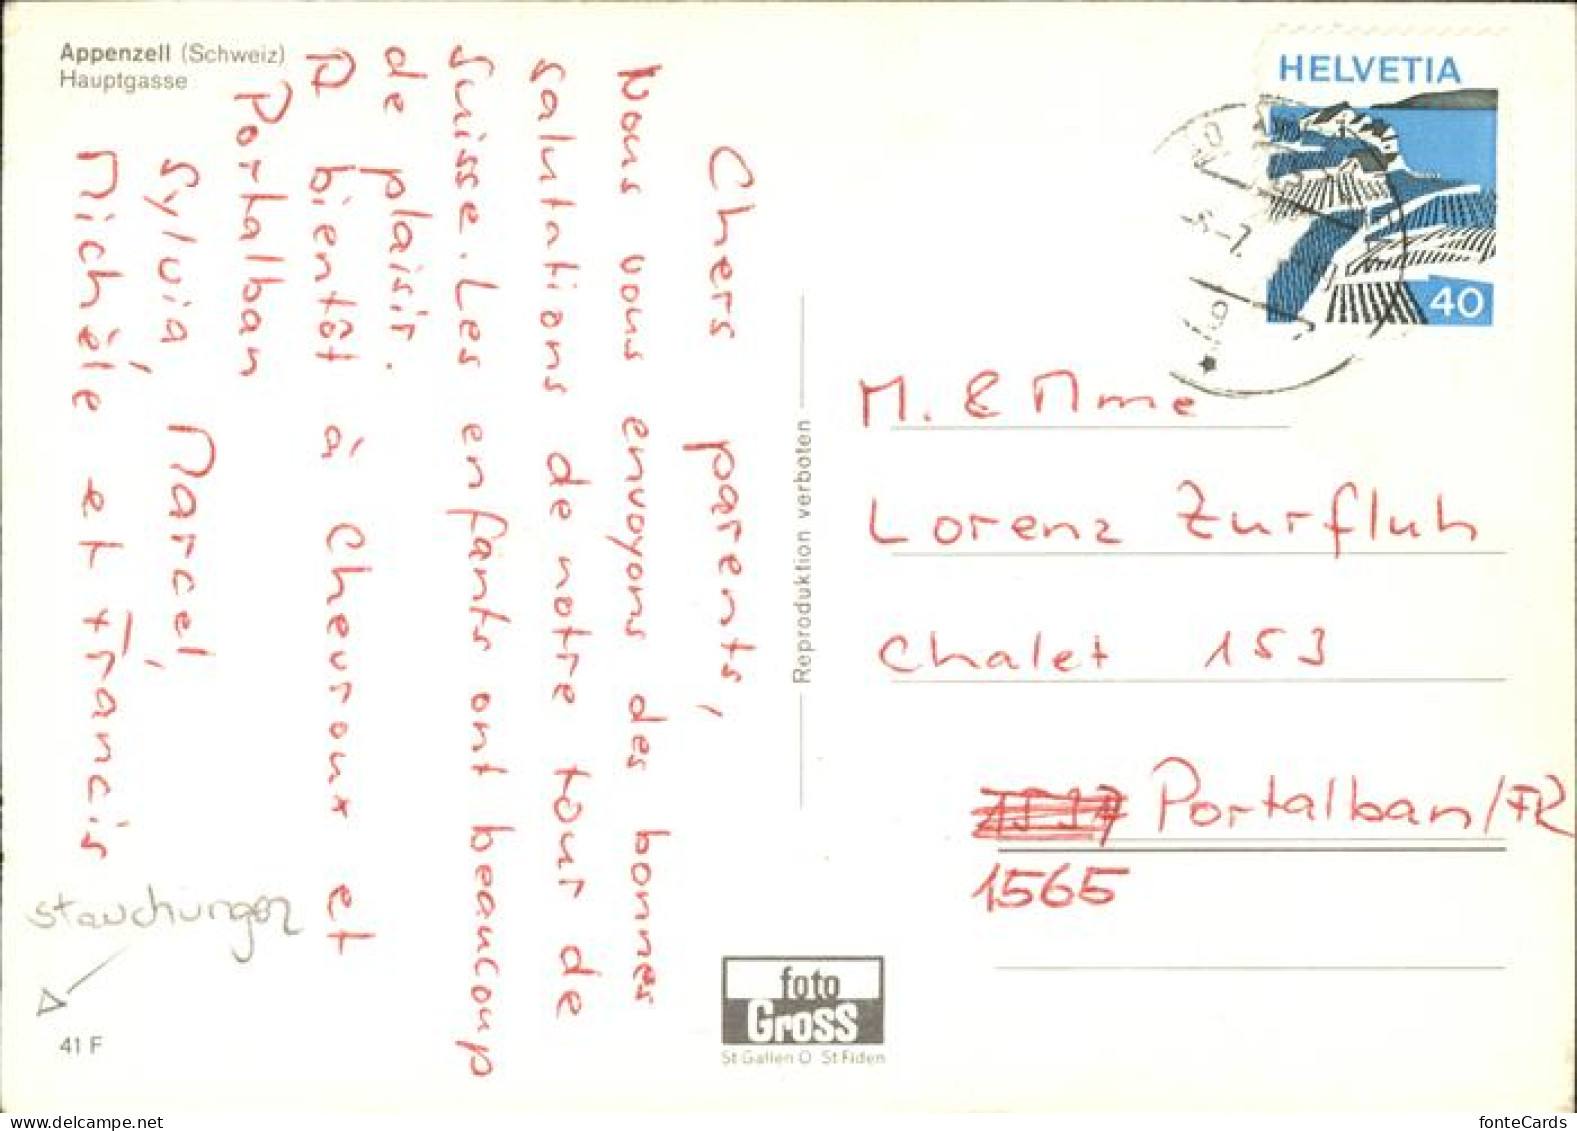 Appenzell (Schweiz)
Hauptgasse
Chers parents,
Nous vous envoyons des bonnes
salutations de notre tour de
Suisse. Les enfants ont beaucoup
de plaisir.
A bientôt à Chevroux et
Portalban
Sylvia, Marcel,
Michèle et Francis
stauchungen
41 F
Reproduktion verboten
foto
Gross
St Gallen O St Fiden
HELVETIA
40
M. & Mme
Lorenz Zurfluh
Chalet 153
Portalban/FR
1565
fonteCards